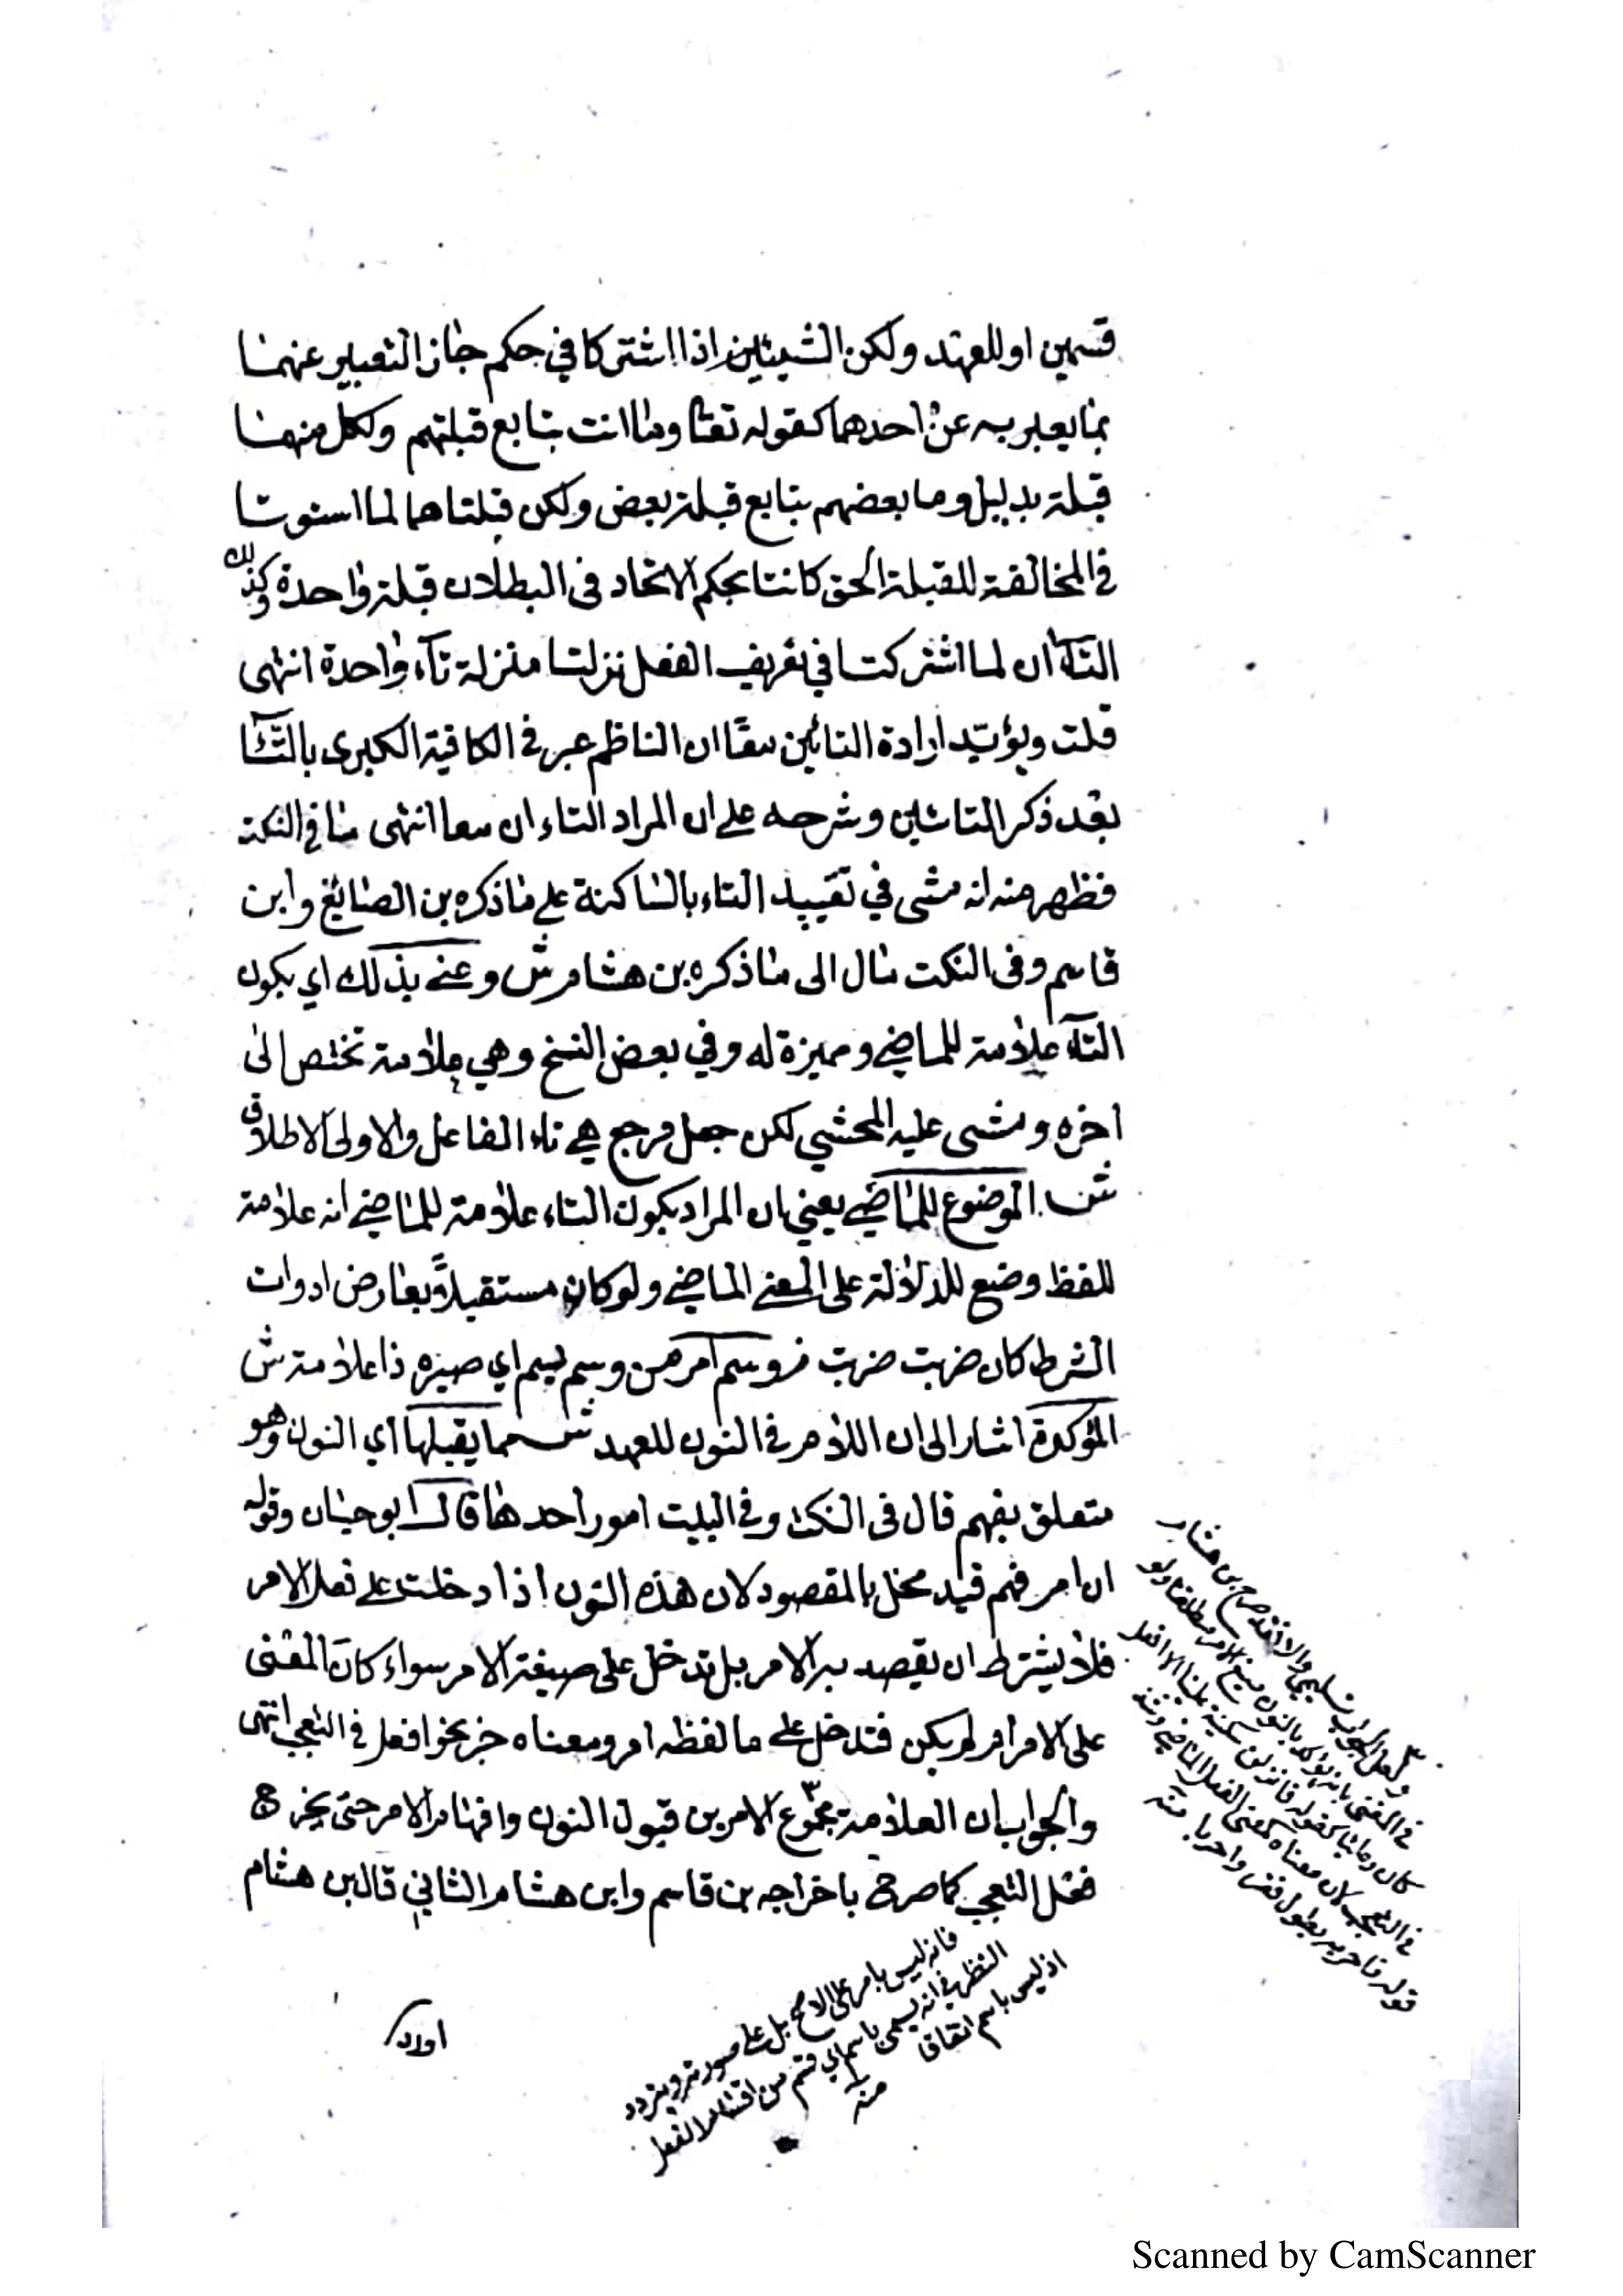 قسمين او للعهد ولكن الشيئين اذا اشتركا في حكم جاز التعبير عنهما
بما يعبر به عن احدهما كقوله تعا وما انت بتابع قبلتهم ولكل منهما
قبلة بدليل وما بعضهم بتابع قبلة بعض ولكن قبلتاهما لما استوتا
في المخالفة للقبلة الحق كانتا بحكم الاتحاد في البطلان قبلة واحدة وكذلك
التاآن لما اشتركتا في تعريف الفعل نزلتا منزلة تآء واحدة انتهى
قلت ويؤيّد ارادة التائين معًا ان الناظم عبر في الكافية الكبرى بالتّآ
بعد ذكر التائين وشرحه على ان المراد التاءان معا انتهى ما في النكتة
فظهر منه انه مشى في تقييد التاء بالساكنة على ما ذكره بن الصائغ وابن
قاسم وفي النكت مال الى ما ذكره بن هشام ش وعنى بذلك اي بكون
التآء علامة للماضي ومميزة له وفي بعض النسخ وهي علامة تختص الى
اخره ومشى عليه المحشي لكن جعل مرجع هي تاء الفاعل والاولى الاطلاق
ش الموضوع للماضي يعني بان المراد بكون التاء علامة للماضي انه علامة
للفظ وضع للدلالة على المعنى الماضي ولو كان مستقبلاً بعارض ادوات
الشرط كان ضربت ضربت م وسم امر من وسم يسم اي صيره ذا علامة ش
المؤكدة اشار الى ان اللام في النون للعهد ش مما يقبلها اي النون وهو
متعلق بفهم قال في النكت وفي البيت امور احدها قال ابو حيان وقوله
ان امر فهم قيد مخل بالمقصود لان هذه النون اذا دخلت على فعل الامر
فلا يشترط ان يقصد به الامر بل تدخل على صيغة الامر سواء كان المعنى
على الامر ام لم يكن فتدخل على ما لفظه امر ومعناه خبر نحو افعل في التعجب انتهى
والجواب ان العلامة مجموع الامرين قبول النون وافهام الامر حتى يخرج
فعل التعجب كما صرح باخراجه بن قاسم وابن هشام الثاني قال بن هشام
ولعل الجواب تسليمي والا فقد صرح بن هشام
في المغني بانه يؤكد بالنون صيغ الامر مطلقا ولو
كان دعائيا كقوله فانزلن سكينة علينا الا افعل
في التعجب لان معناه كمعنى الفعل الماضي وشذ
قوله فاحر به بطول فقر واحريا منه
فانه ليس بامر على الاصح بل على صورته ويتردد
النظر في انه يسمى باسم اي قسم من اقسام الفعل
اذ ليس باسم اتفاقا
منه
اولاد
Scanned by CamScanner